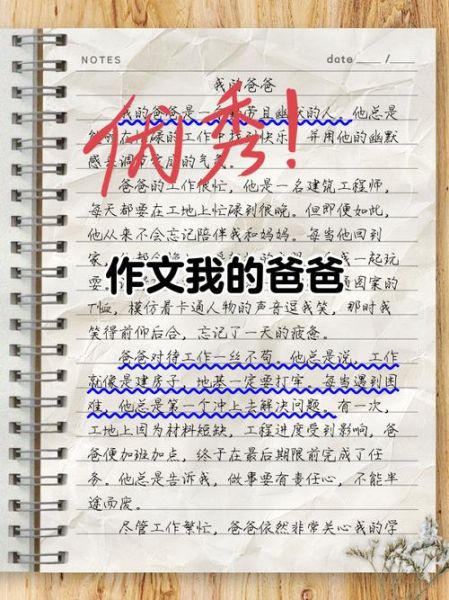 NOTES
date ___ /___
我的爸爸
优秀!
我的爸爸是一 带且幽默的人 他总是
在 碌的工作中找到快乐 并用他的幽默
感 调节 庭的气
爸爸的工作很忙,他是一名建筑工程师,
每天都要在工地上忙碌到很晚。但即便如此,
他从来不会忘记陪伴我和妈妈。每当他回到
家, 我一起玩
耍 通图案的
作文我的爸爸
T恤,模仿着卡通人物的声音逗我笑,那时我
笑得前仰后合,忘记了一天的疲惫。
爸爸对待工作一丝不苟。他总是说,工作
就像是建房子,地基一定要打牢。每当遇到困
难,他总是第一个冲上去解决问题。有一次,
工地上因为材料短缺,工程进度受到影响,爸
爸便加班加点,终于在最后期限前完成了任
务。他总是告诉我,做事要有责任心,不能半
途而废。
尽管工作繁忙,爸爸依然非常关心我的学